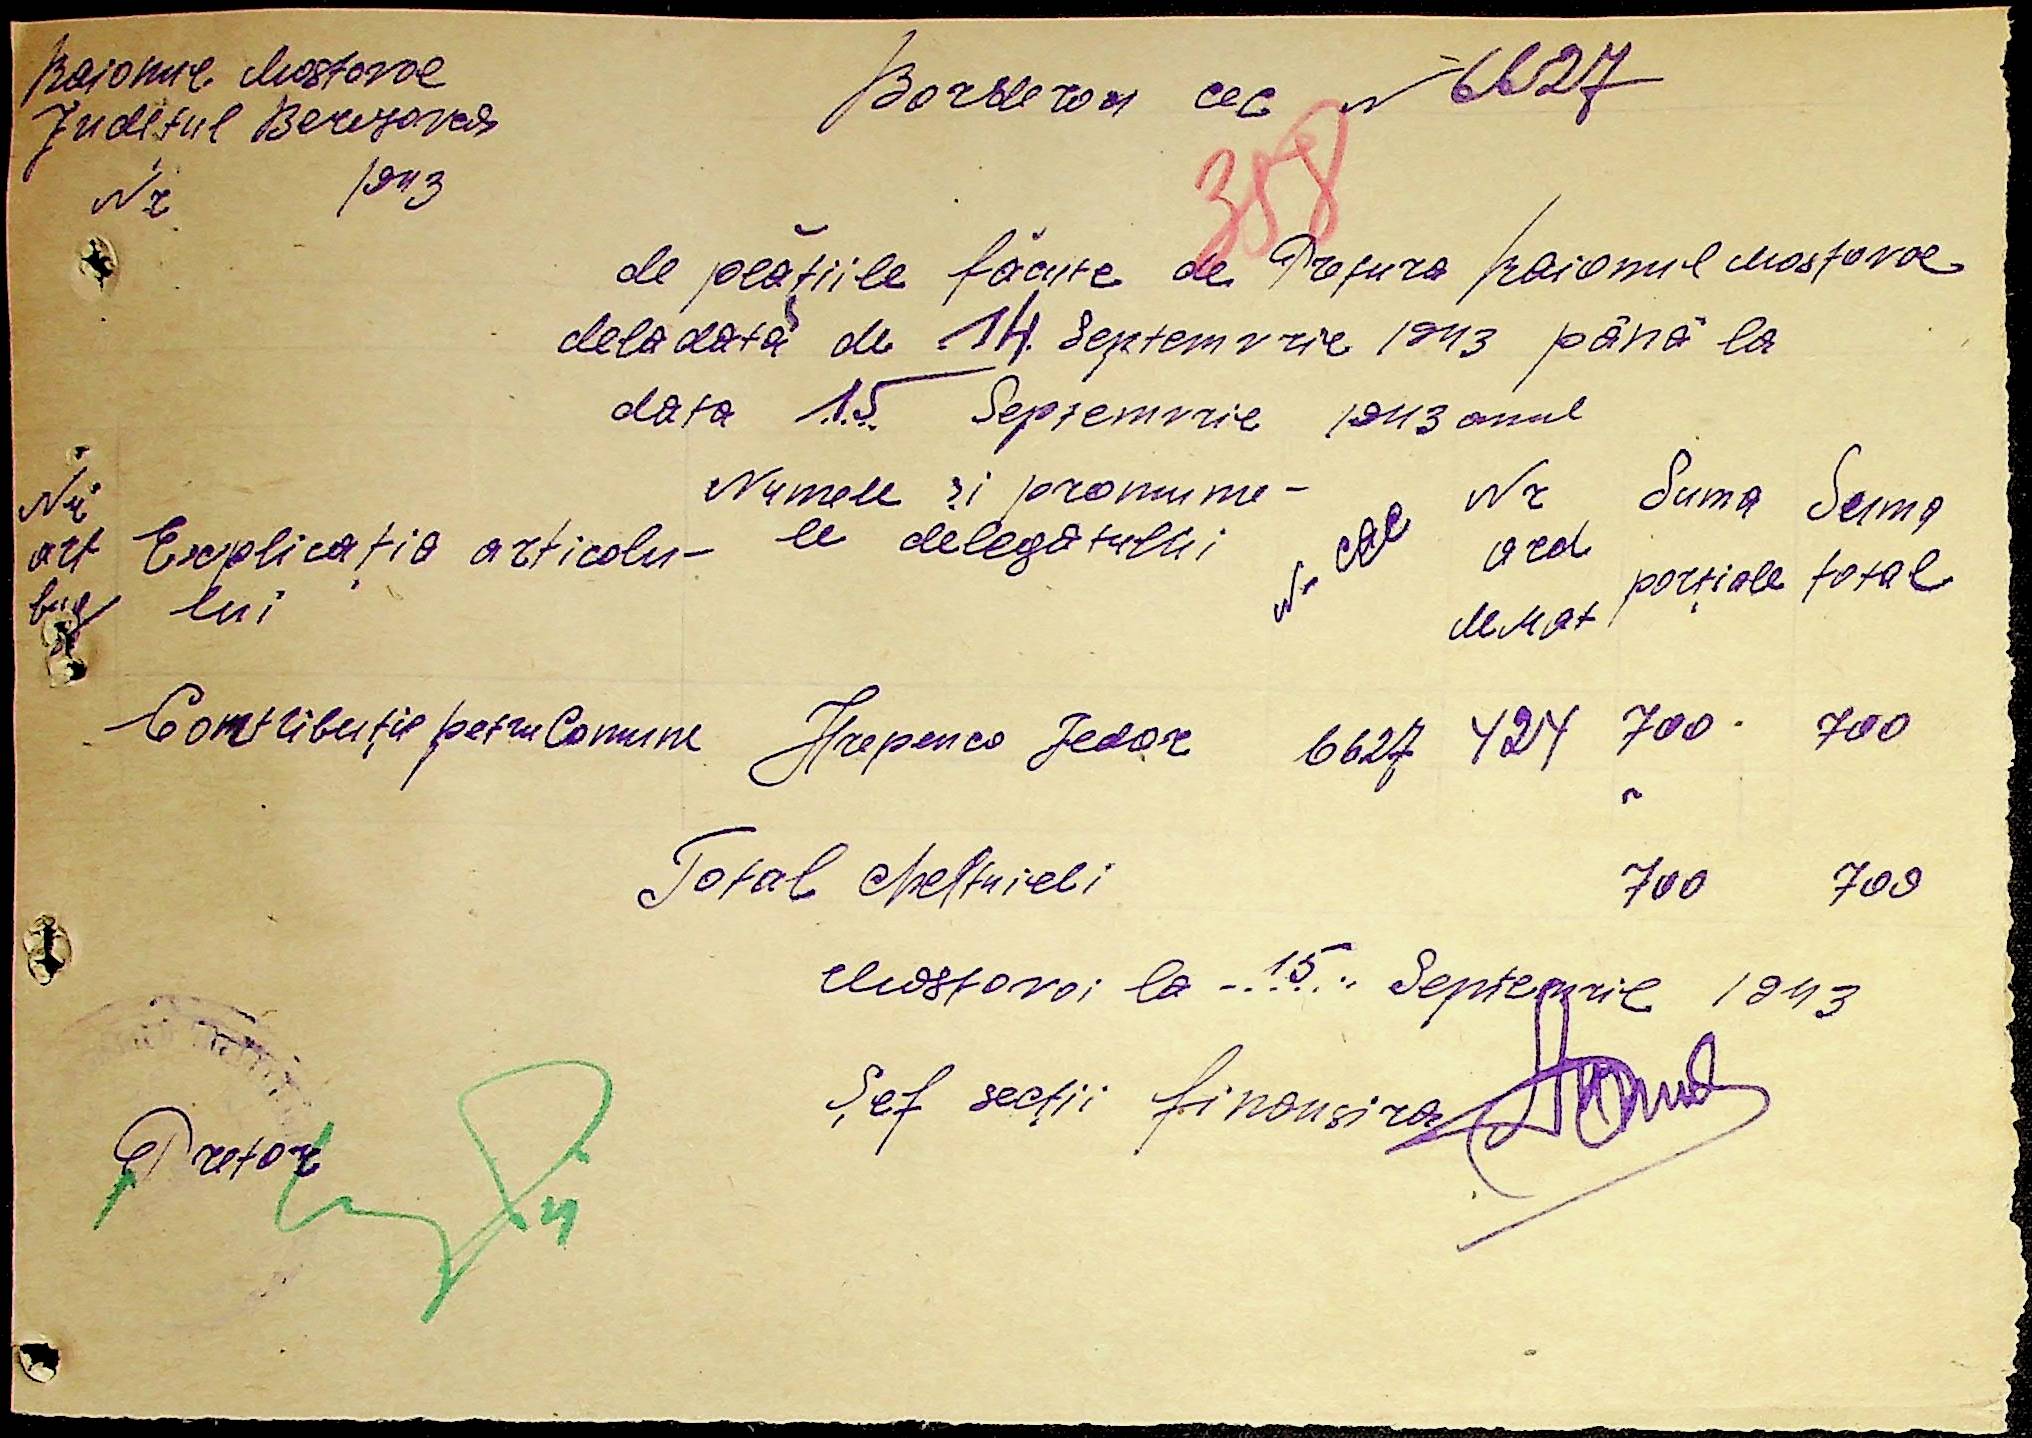 Raionul Mostovoe
Judetul Berezovca
Nr 1943
Borderou cec N 6627
358
de plățiile făcute de Pretura Raionul Mostovoe
dela data de 14 Septemvrie 1943 până la
data 15 Septemvrie 1943 anul
Nr art bug
Explicația articolu-
lui
Numele și pronume-
le delegatului
Nr cec
Nr ord de Mat
Suma porțiale
Suma total
Contribuție petru Comune Hrepenco Fedor 6627 424 700 700
Total cheltuieli 700 700
Mostovoi la 15 Septemrie 1943
Șef secții finansira
Pretor